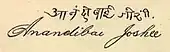 आनंदीबाई जोशी.
Anandibai Joshee